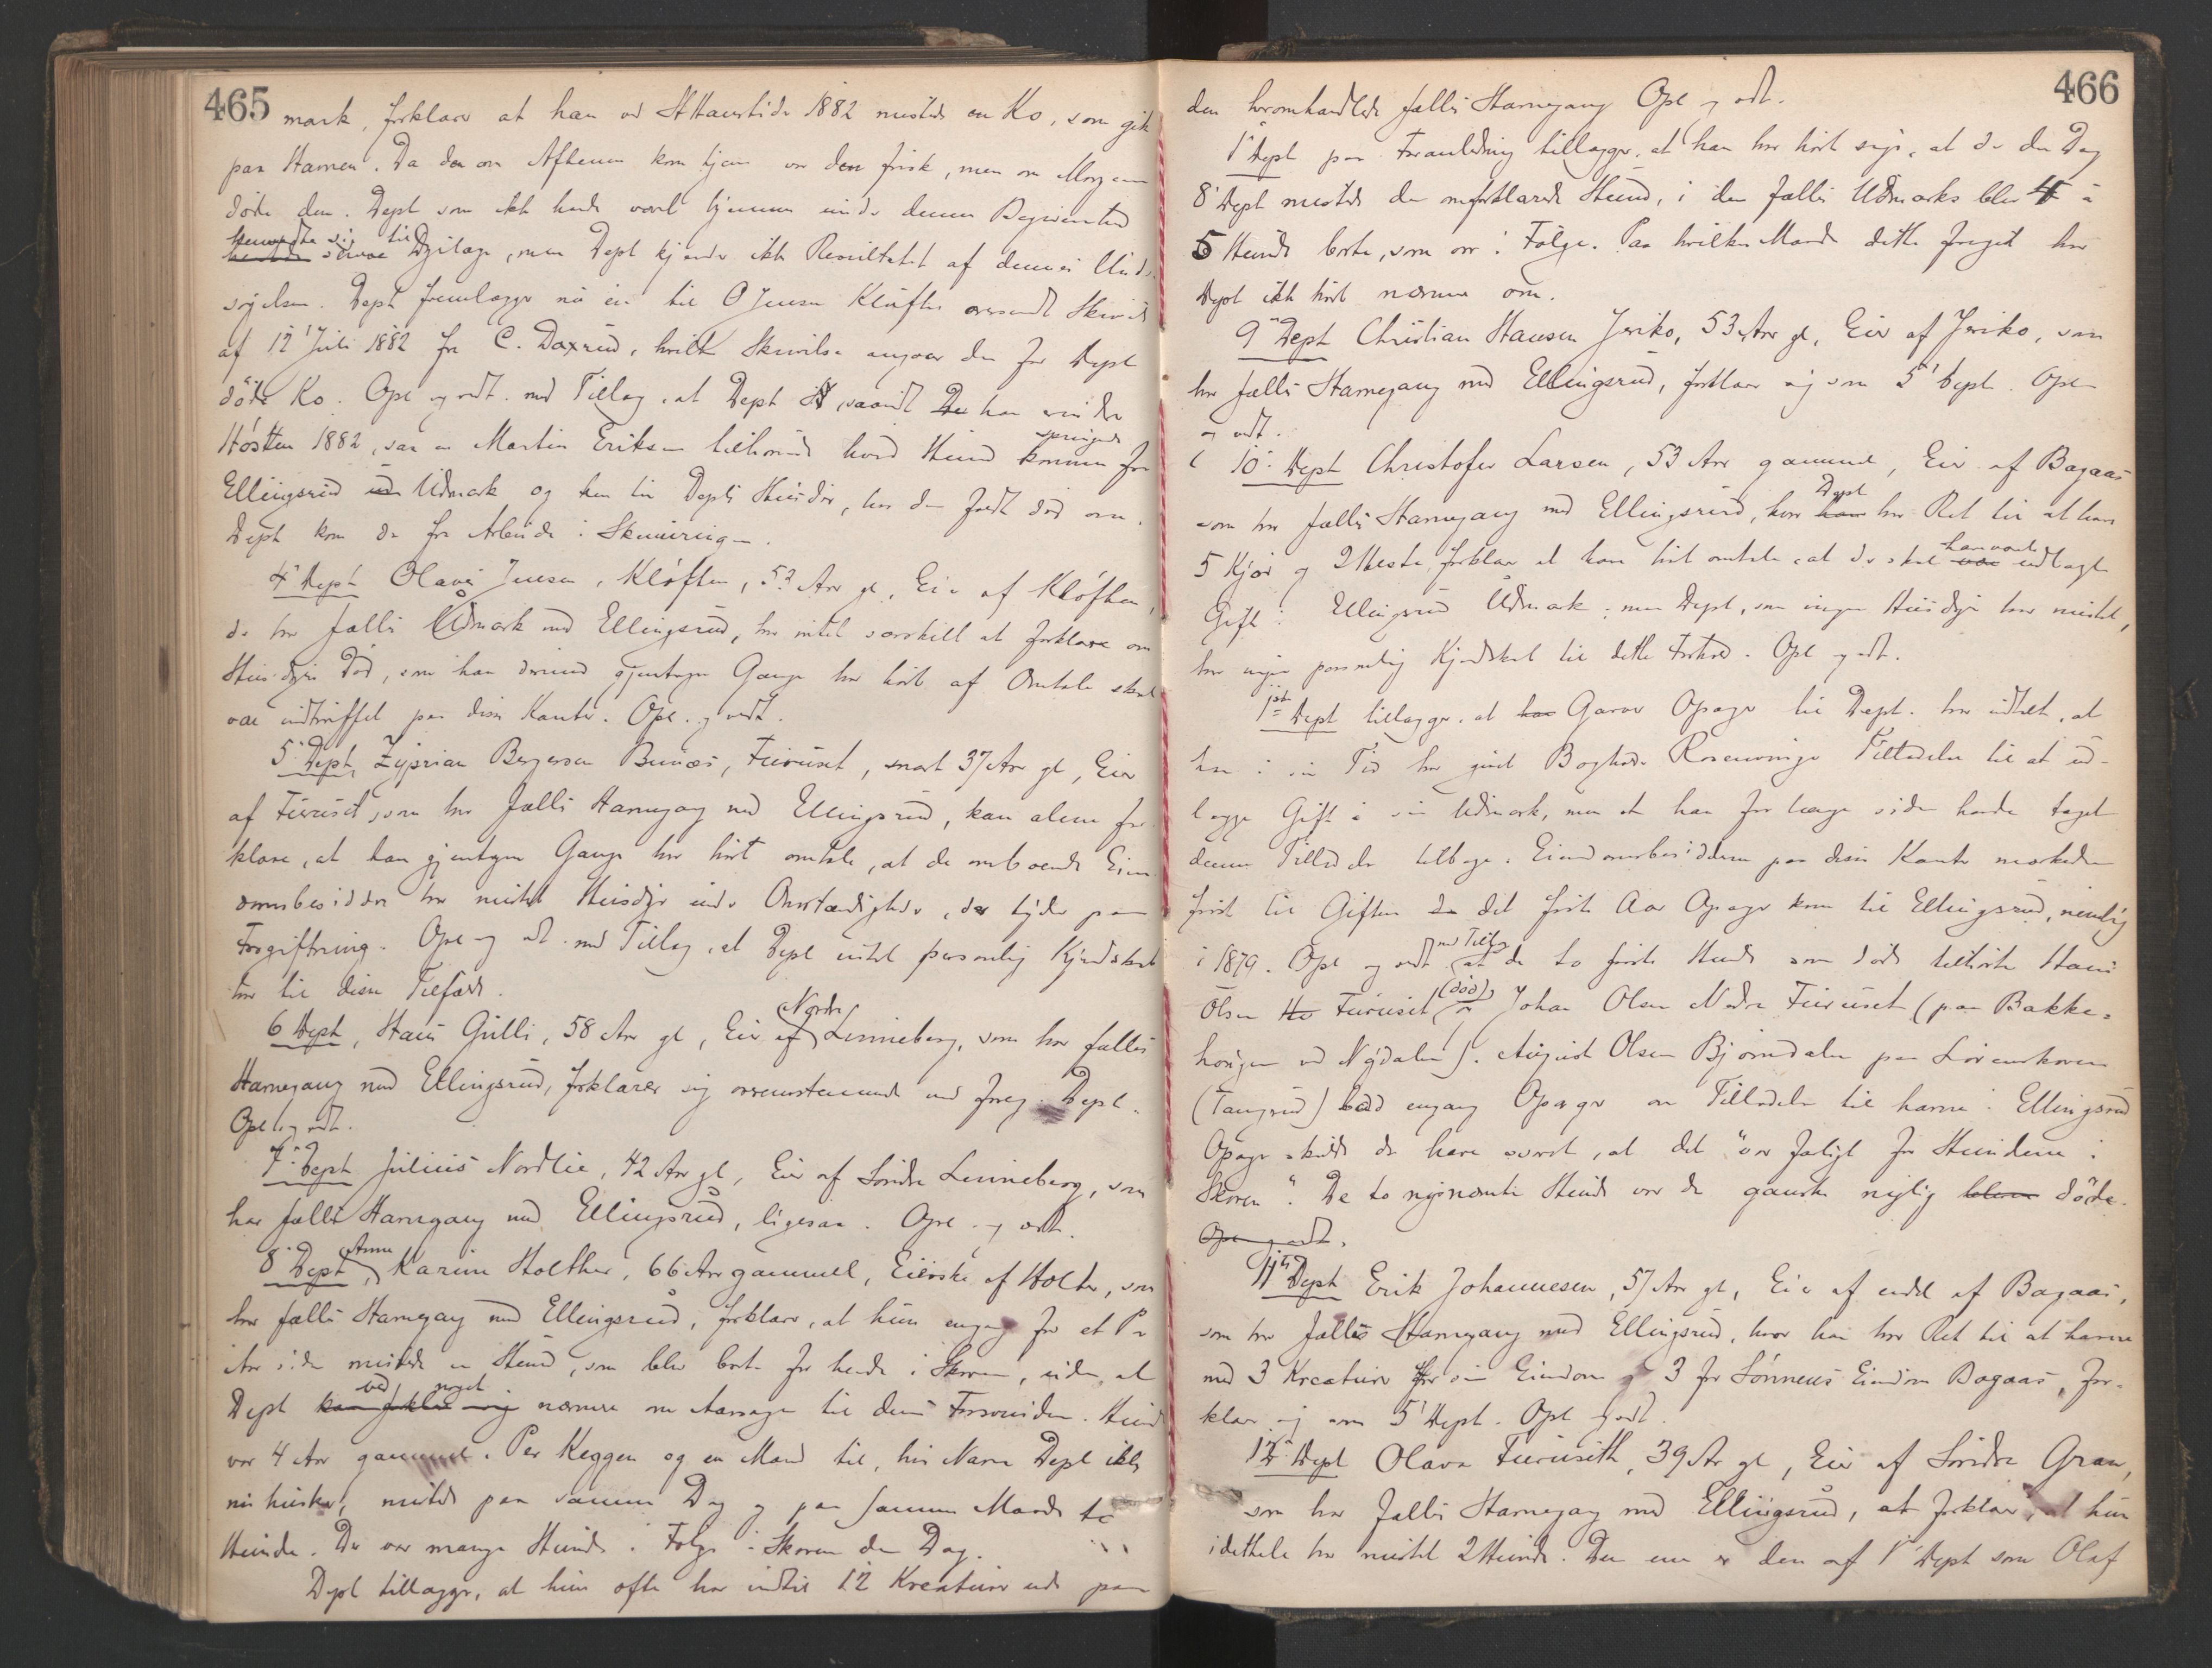 465
mark, forklarer at han ved St Hanstider 1882 mistede en Ko, som gik
paa Havnen. Da den om Aftenen kom hjem var den frisk, men om Morgenen
døde den. Dept som ikke havde været hjemme under denne Begivenhed
henvendte sig til Dyrlæge, men Dept kjender ikke Resultatet af dennes Und-
søgelse. Dept fremlægger nu en til O Jensen Kløften oversendt Skrivelse
af 12' Juli 1882 fra C. Daxrud, hvilken Skrivelse angaar den for Dept
døde Ko. Opl og vedt. med Tillæg, at Dept saavidt han erindrer
Høsten 1882, saa en Martin Eriksen tilhørende hvid Hund springende komme fra
Ellingsrud Udmark og hen til Depts Husdør, hvor den faldt død om.
Dept kom da fra Arbeide i Skurningen.
4' Dept Olaves Jensen, Kløften, 53 Aar gl, Eier af Kløften,
der har fælles Udmark med Ellingsrud, har intet særskilt at forklare om
Husdyrs Død, som han derimod gjentagne Gange har hørt af Omtale skal
være indtruffet paa disse Kanter. Opl. og vedt.
5' Dept, Zyprian Bergersen Bunæs, Furuset, snart 37 Aar gl, Eier
af Furuset som har fælles Havnegang med Ellingsrud, kan alene for-
klare, at han gjentagne Gange har hørt omtale, at de omboende Eien-
domsbesiddere har mistet Husdyr under Omstændigheder, der tyder paa
Forgiftning. Opl og vedt. med Tillæg, at Dept intet personlig Kjendskab
har til disse Tilfælde.
6 Dept, Hans Gulli, 58 Aar gl, Eier af Nordre Linneberg, som har fælles
Havnegang med Ellingsrud, forklarer sig overensstemmende med foreg. Dept.
Opl og vedt.
7' Dept Julius Nordlie, 42 Aar gl, Eier af Søndre Linneberg, som
har fælles Havnegang med Ellingsrud, ligesaa. Opl. og vedt.
8' Dept, Anne Karine Holther, 66 Aar gammel, Eierske af Holter, som
har fælles Havnegang med Ellingsrud, forklarer, at hun engang for et Par
Aar siden mistede en Hund, som blev borte for hende i Skoven, uden at
Dept ved noget nærmere om Aarsagen til dens Forsvinden. Hunden
var 4 Aar gammel. Per Keggen og en Mand til, hvis Navn Dept ikke
nu husker, mistede paa samme Dag og paa samme Maade to
Hunde. Der var mange Hunde i Følge i Skoven den Dag.
Dept tillægger, at hun ofte har indtil 12 Kreature ude paa
466
den heromhandlede fælles Havnegang Opl og vedt.
1' Dept paa Foranledning tillægger, at han har hørt sige, at da den Dag
8' Dept mistede den omforklarede Hund, i den fælles Udmarks blev 4 à
5 Hunde borte, som var i Følge. Paa hvilken Maade dette foregik har
Dept ikke hørt nærmere om.
9' Dept Christian Hansen Jeriko, 53 Aar gl, Eier af Jeriko, som
har fælles Havnegang med Ellingsrud, forklarer sig som 5' Dept. Opl
og vedt.
10' Dept Christofer Larsen, 53 Aar gammel, Eier af Bagaas
som har fælles Havnegang med Ellingsrud, hvor Dept har Ret til at havne
5 Kjør og 2 Heste, forklarer at have hørt omtale, at der skal have været udlagt
Gift i Ellingsrud Udmark, men Dept, som ingen Husdyr har mistet,
har ingen personlig Kjendskab til dette Forhold. Opl og vedt.
1ste Dept tillægger, at Garver Opager til Dept. har udtalt, at
han i sin Tid har givet Bogholder Rosenvinge Tilladelse til at ud-
lægge Gift i sin Udmark, men at han for længe siden havde taget
denne Tilladelse tilbage. Eiendomsbesidderne paa disse Kanter mærkede
først til Giften det første Aar Opager kom til Ellingsrud, nemlig
i 1879. Opl og vedt med Tillæg at de to første Hunde som døde tilhørte Hans
Olsen Furuset (død) og Johan Olsen Nedre Furuset (paa Bakke-
haugen ved Nydalen). August Olsen Bjørndalen paa Lørenskoven
(Tangerud) bad engang Opager om Tilladelse til havne i Ellingsrud
Opager skulde da have svaret, at det "var farligt for Hundene i
Skoven". De to nysnævnte Hunde var da ganske nylig døde.
Opl og vedt.
11te Dept Erik Johannesen, 57 Aar gl, Eier af endel af Bagaas,
som har fælles Havnegang med Ellingsrud, hvor han har Ret til at havne
med 3 Kreature for sin Eiendom og 3 for Sønnens Eiendom Bagaas, for-
klarer sig som 5' Dept. Opl og vedt.
12' Dept Olava Furuseth, 39 Aar gl, Eier af Søndre Gran,
som har fælles Havnegang med Ellingsrud, at forklarer, at hun
idethele har mistet 2 Hunde. Den ene er den af 1' Dept som Olaf